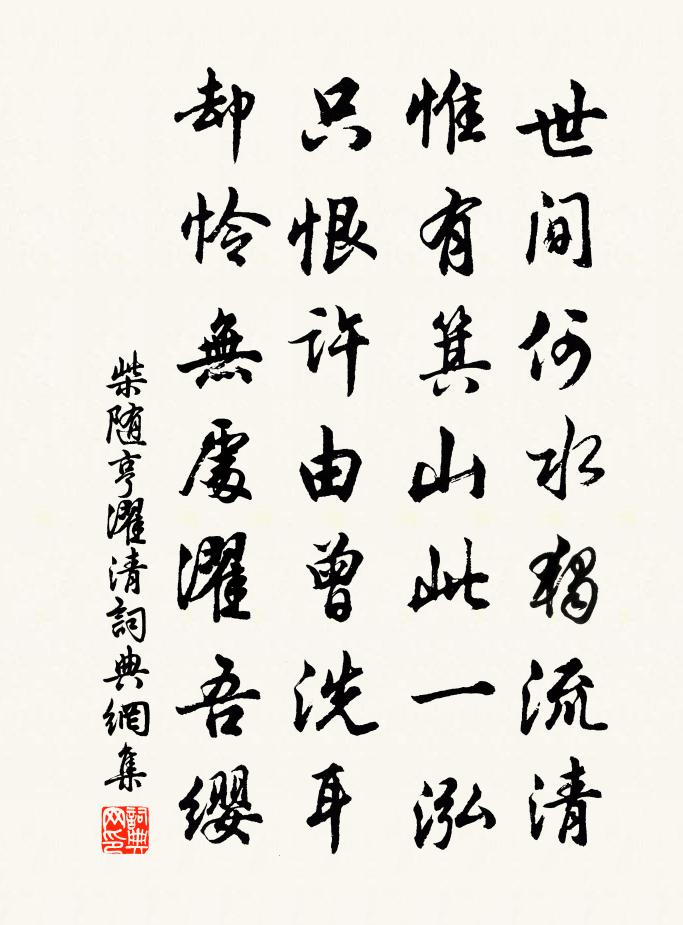 世間何水獨流清
惟有箕山此一泓
只恨許由曾洗耳
却怜無處濯吾纓
柴随亨濯清詞典網集
詞典网印